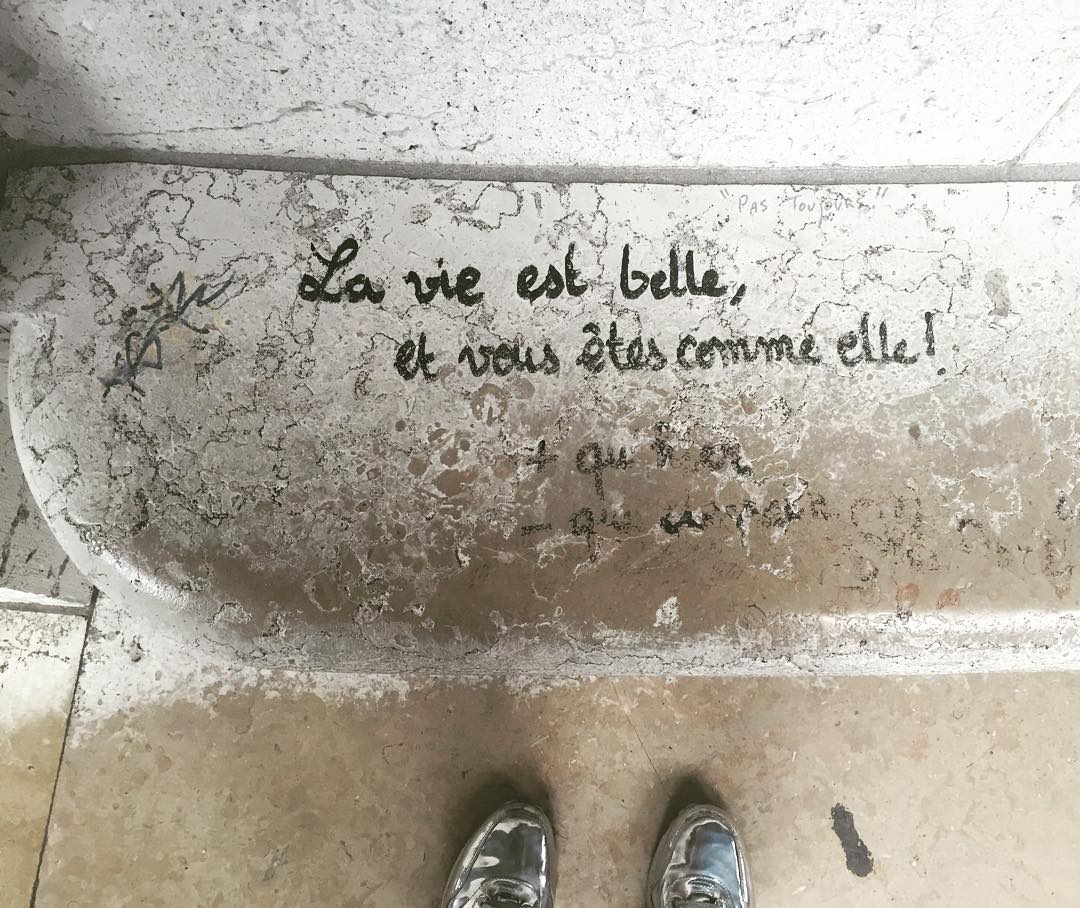 "PAS TOUJOURS"
La vie est belle,
et vous êtes comme elle !
+ qu'hier
- que